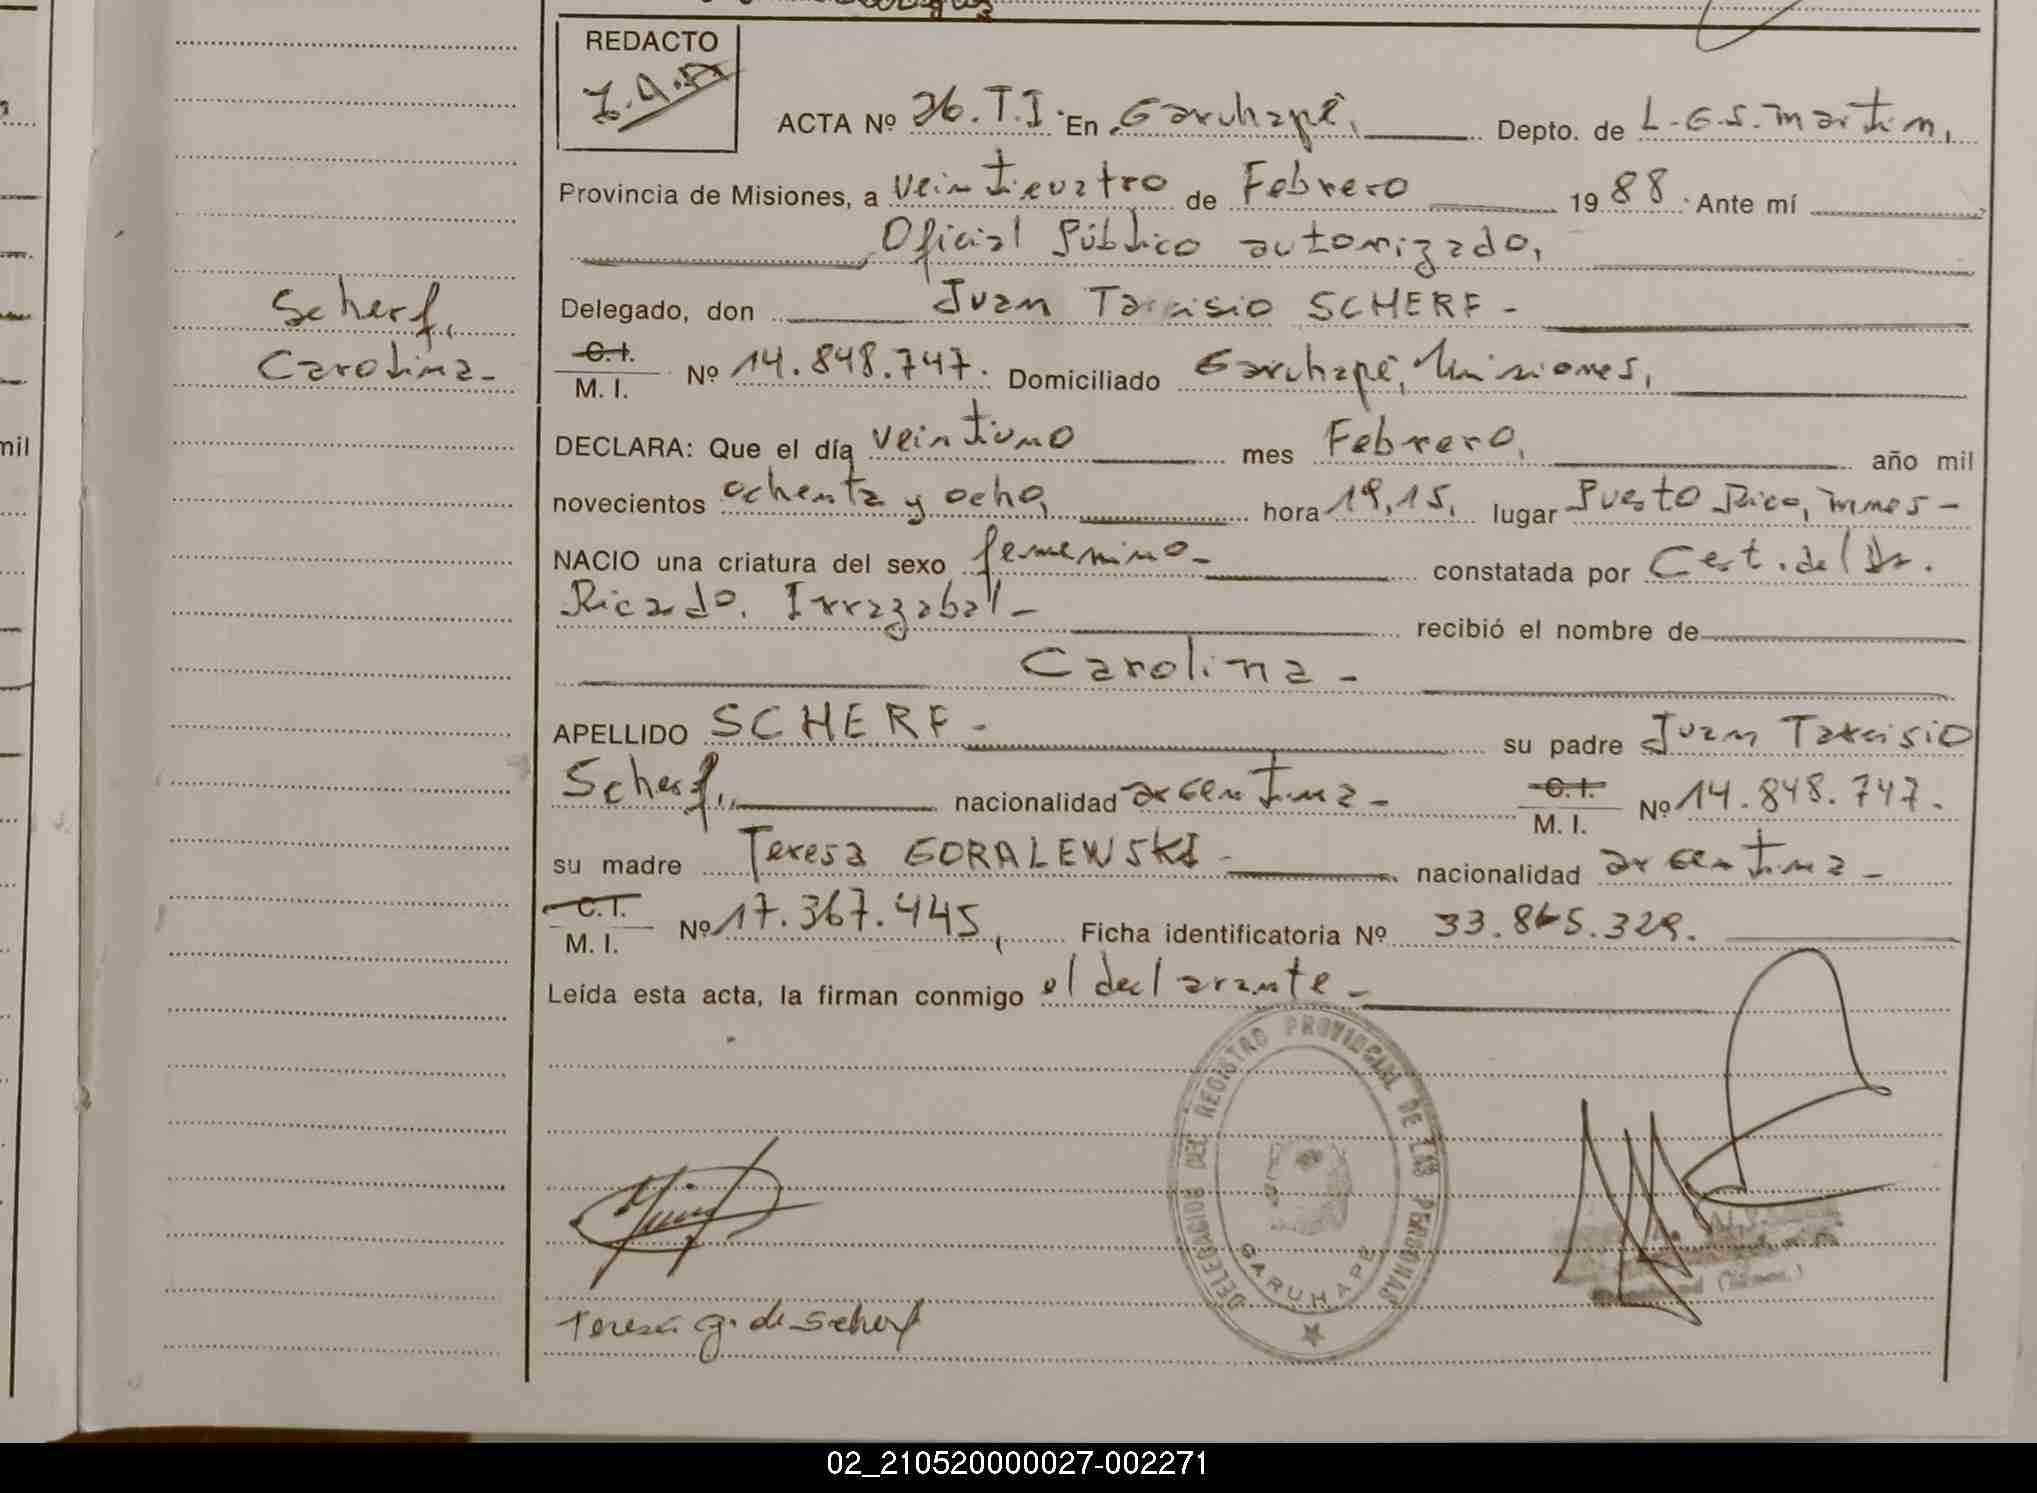 REDACTO
ACTA Nº 26. T.I. En Garuhapé, Depto. de L.G.S. Martin,
Provincia de Misiones, a veinticuatro de Febrero 1988. Ante mí
Oficial Público autorizado,
Delegado, don Juan Tarcisio SCHERF -
Scherf,
Carolina-
C. I.
M. I. Nº 14.848.747. Domiciliado Garuhapé, Misiones,
DECLARA: Que el día veintiuno mes Febrero, año mil
novecientos ochenta y ocho, hora 19,15, lugar Puerto Rico, Mnes -
NACIO una criatura del sexo femenino- constatada por Cert. del Dr.
Ricardo. Irrazabal - recibió el nombre de
Carolina -
APELLIDO SCHERF - su padre Juan Tarcisio
Scherf, nacionalidad argentina - C. I.
M. I. Nº 14.848.747.
su madre Teresa GORALEWSKI - nacionalidad argentina -
C. I.
M. I. Nº 17.367.445, Ficha identificatoria Nº 33.865.329.
Leída esta acta, la firman conmigo el declarante -
DELEGACION DEL REGISTRO PROVINCIAL DE LAS PERSONAS
GARUHAPE
Teresa g. de Scherf
mil
02_210520000027-002271